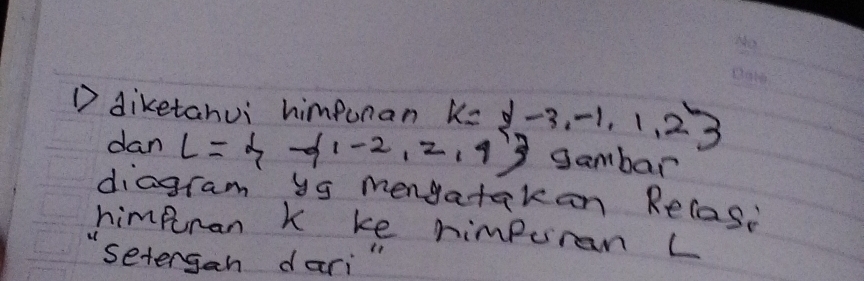 No
Date
1) diketahui himpunan K= {-3,-1, 1,2}
dan L= { -4, -2, 2, 4} gambar
diagram yg mengatakan Relasi
himpunan K ke himpunan L
"setengah dari"